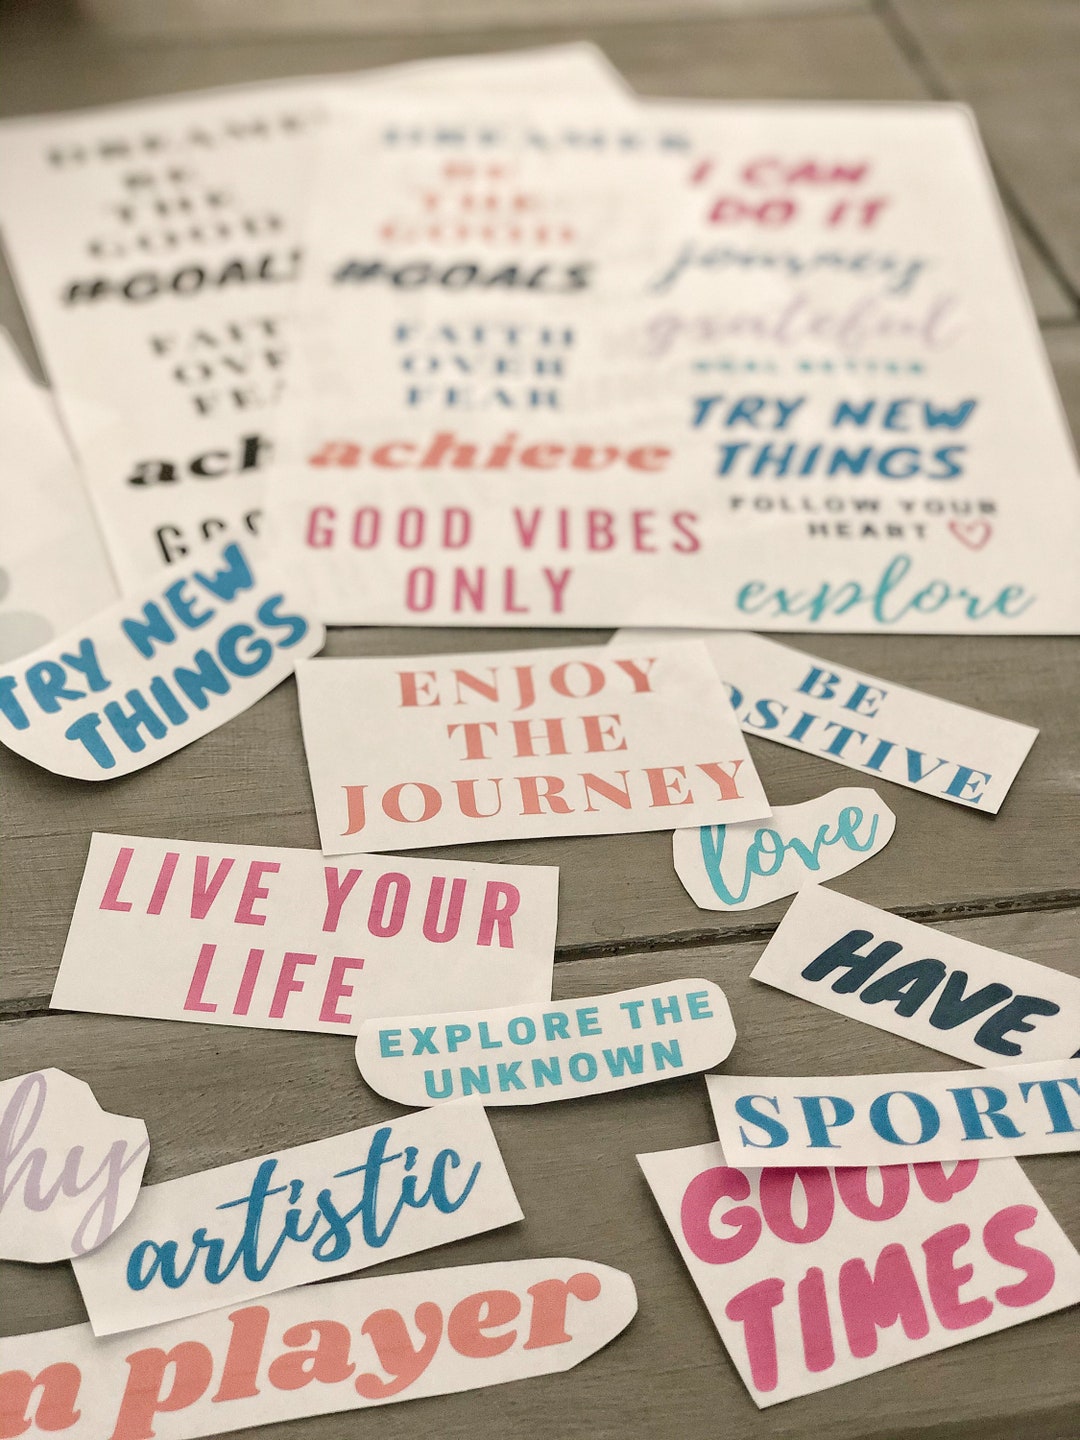 DREAME
BE
THE
GOOD
#GOALS
FAIT
OVE
FEA
ach
GOO
DREAMER
BE
THE
GOOD
#GOALS
FAITH
OVER
FEAR
achieve
GOOD VIBES
ONLY
I CAN
DO IT
journey
grateful
TRY NEW
THINGS
FOLLOW YOUR
HEART
explore
TRY NEW
THINGS
ENJOY
THE
JOURNEY
BE
OSITIVE
love
LIVE YOUR
LIFE
HAVE
EXPLORE THE
UNKNOWN
SPORT
hy
artistic
GOOD
TIMES
m player